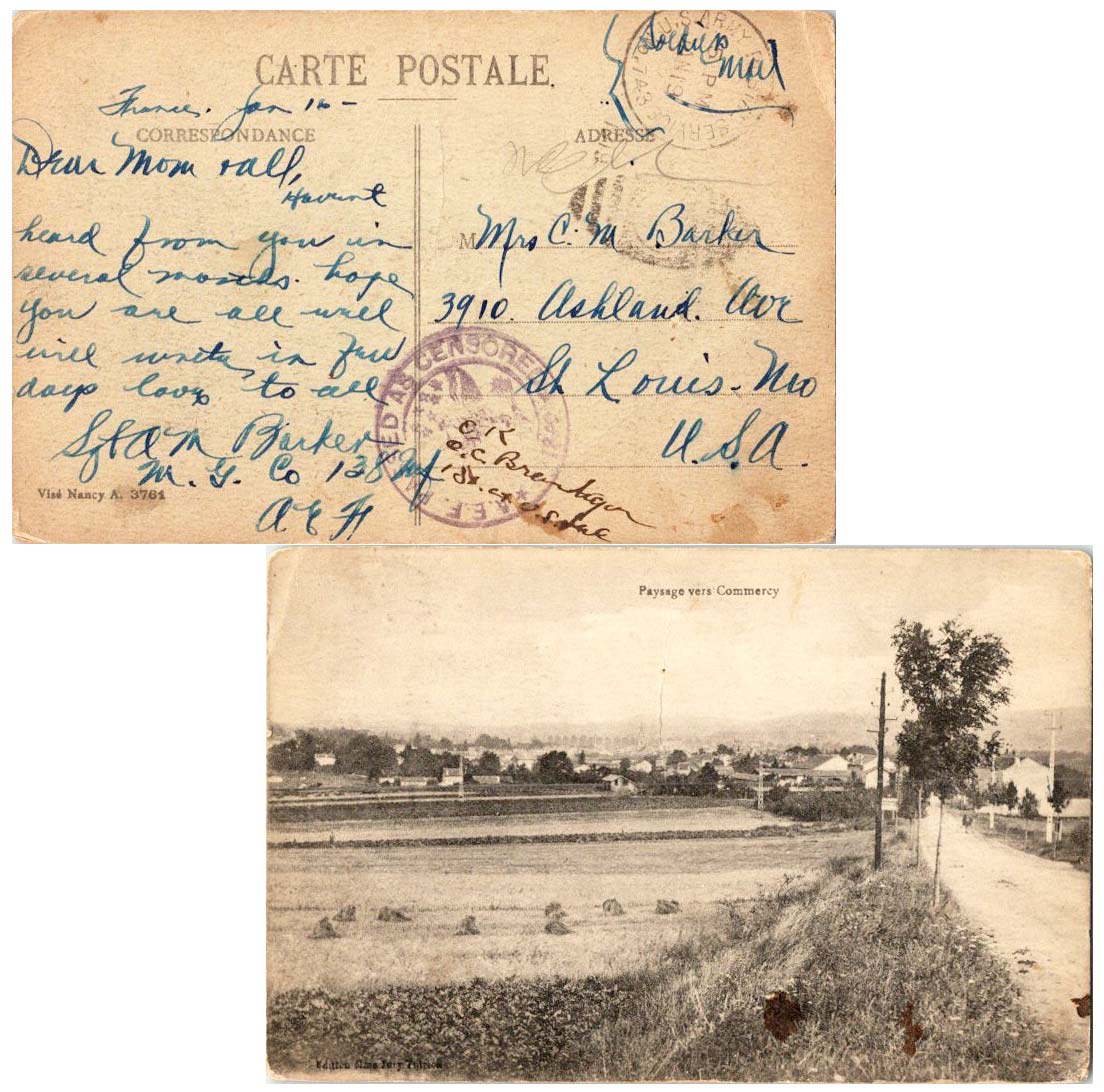 CARTE POSTALE
Soldiers
Mail
U.S. ARMY
PM
France. Jan 16 -
CORRESPONDANCE
ADRESSE
Dear Mom & all,
Havent
heard from you in
several months. hope
you are all well
will write in few
days love to all
Sgt A M Barker
M. G. Co 138 Inf
A E F
Visé Nancy A. 3761
M Mrs C. M Barker
3910. Ashland. Ave
St Louis - Mo
U.S.A.
A.E.F. PASSED AS CENSORED
OK
Paysage vers Commercy